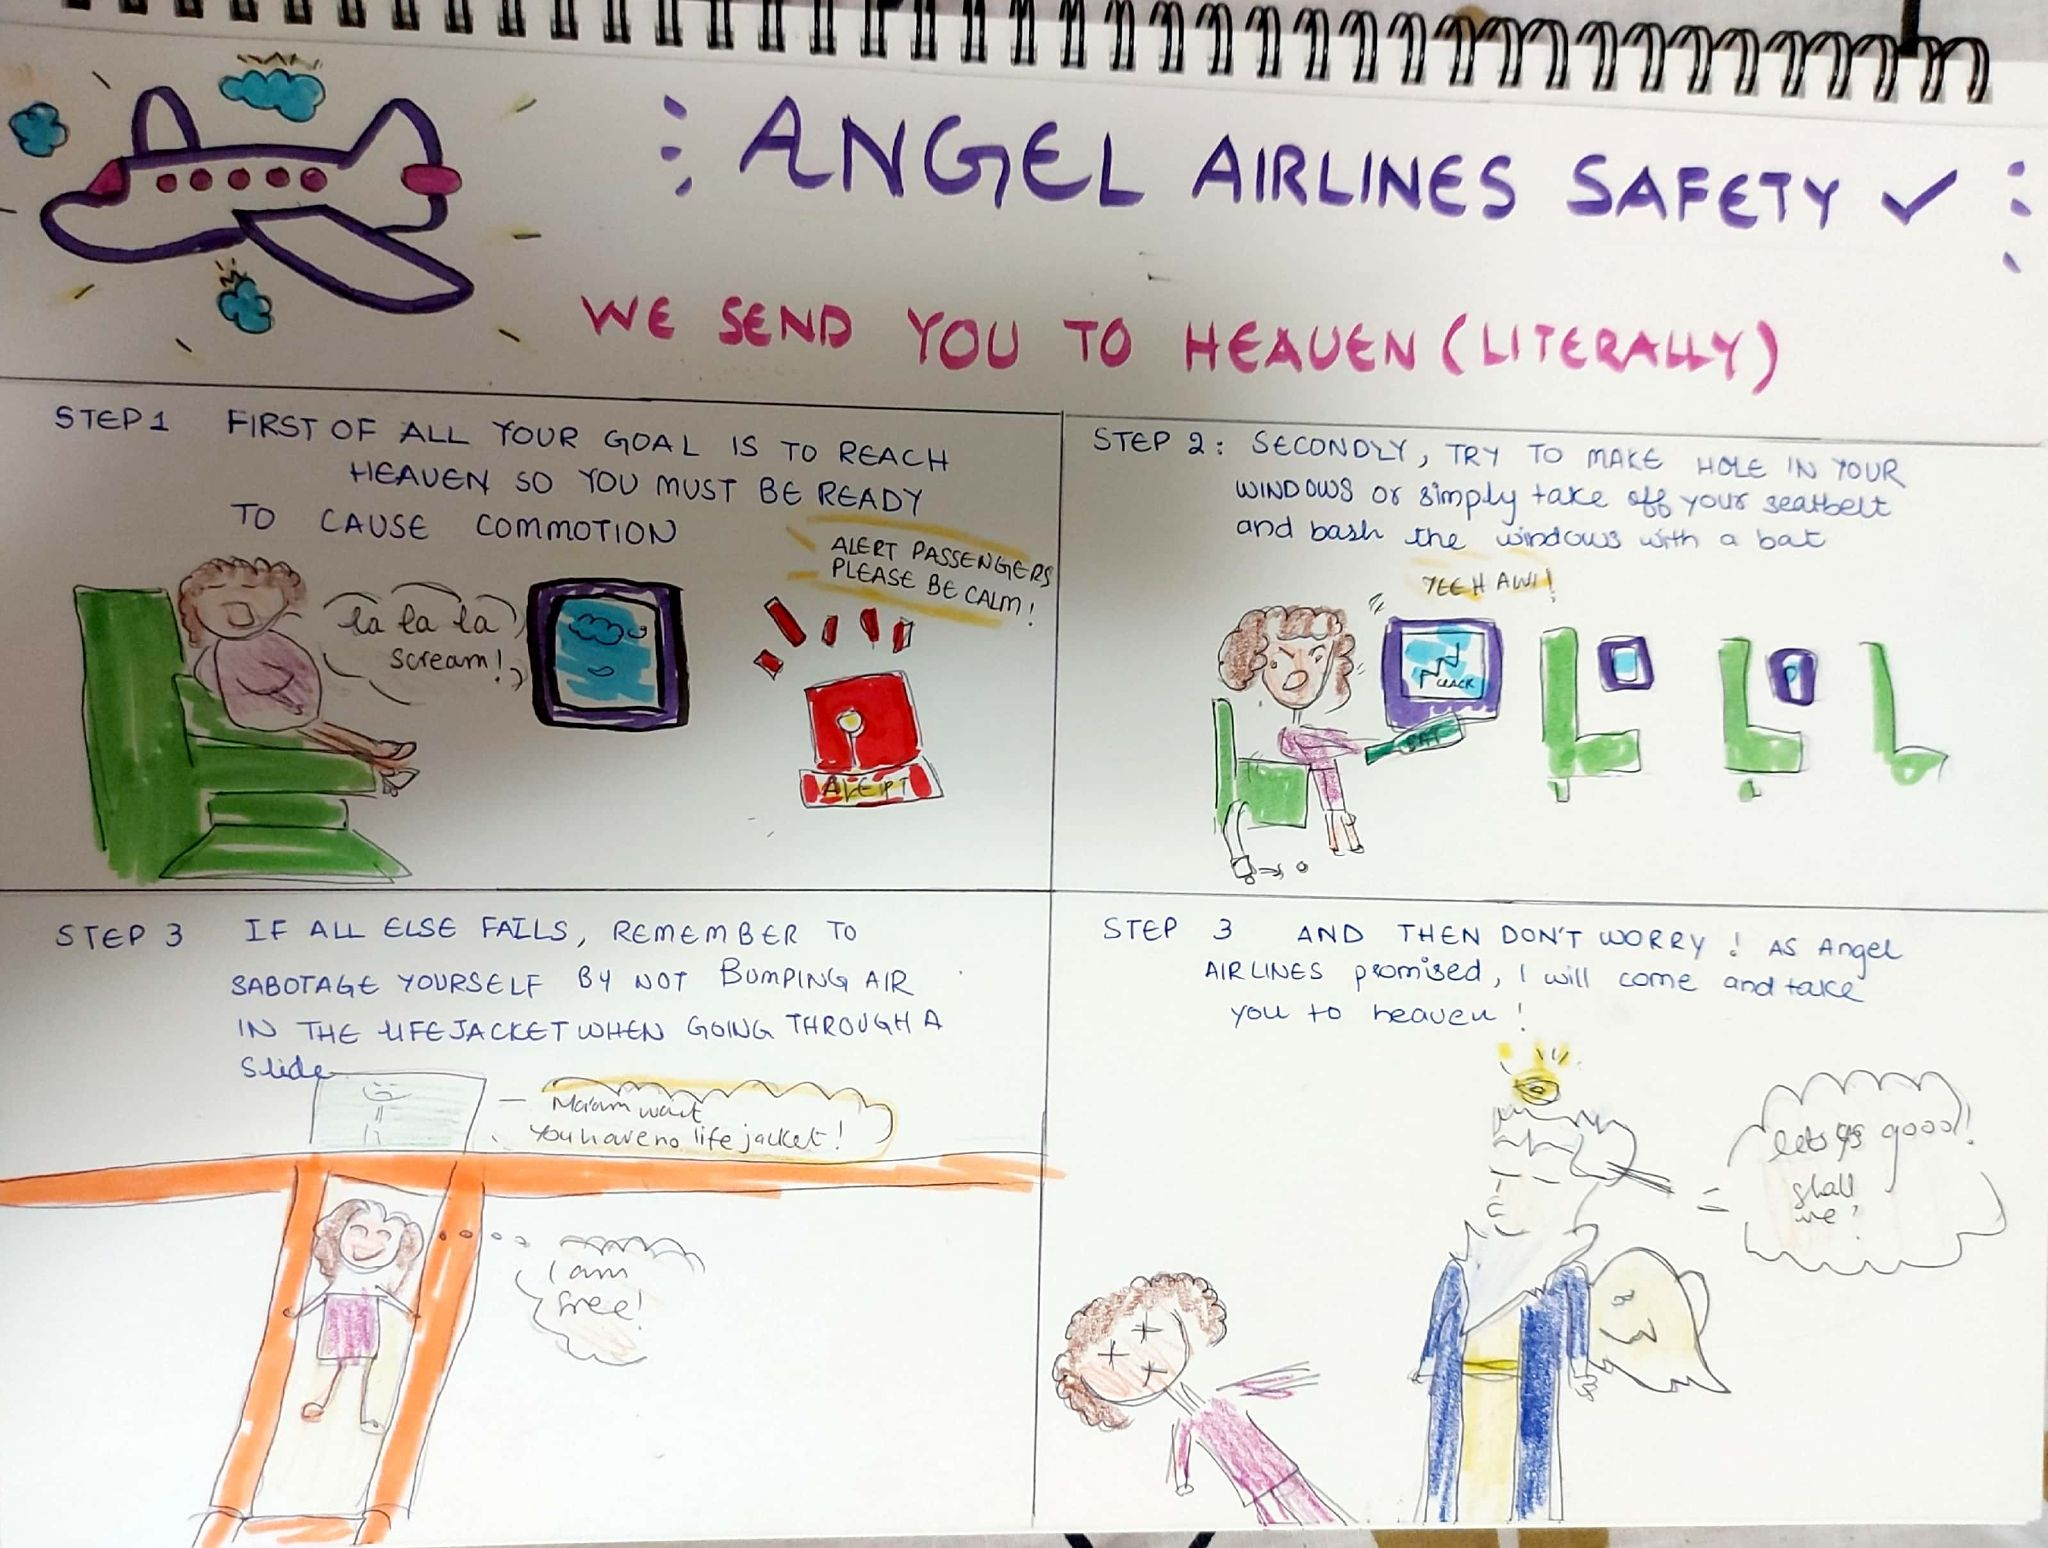 ANGEL AIRLINES SAFETY ✓
WE SEND YOU TO HEAVEN (LITERALLY)
STEP 1 FIRST OF ALL YOUR GOAL IS TO REACH
HEAVEN SO YOU MUST BE READY
TO CAUSE COMMOTION
ALERT PASSENGERS
PLEASE BE CALM!
la la la
scream!
ALERT
STEP 2: SECONDLY, TRY TO MAKE HOLE IN YOUR
WINDOWS or simply take off your seatbelt
and bash the windows with a bat
YEEHAW!
CRACK
BAT
STEP 3 IF ALL ELSE FAILS, REMEMBER TO
SABOTAGE YOURSELF BY NOT BUMPING AIR
IN THE LIFEJACKET WHEN GOING THROUGH A
Slide
Ma'am wait
You have no life jacket!
I am
free!
STEP 3 AND THEN DON'T WORRY! AS Angel
AIRLINES promised, I will come and take
you to heaven!
lets go good!
shall
we?